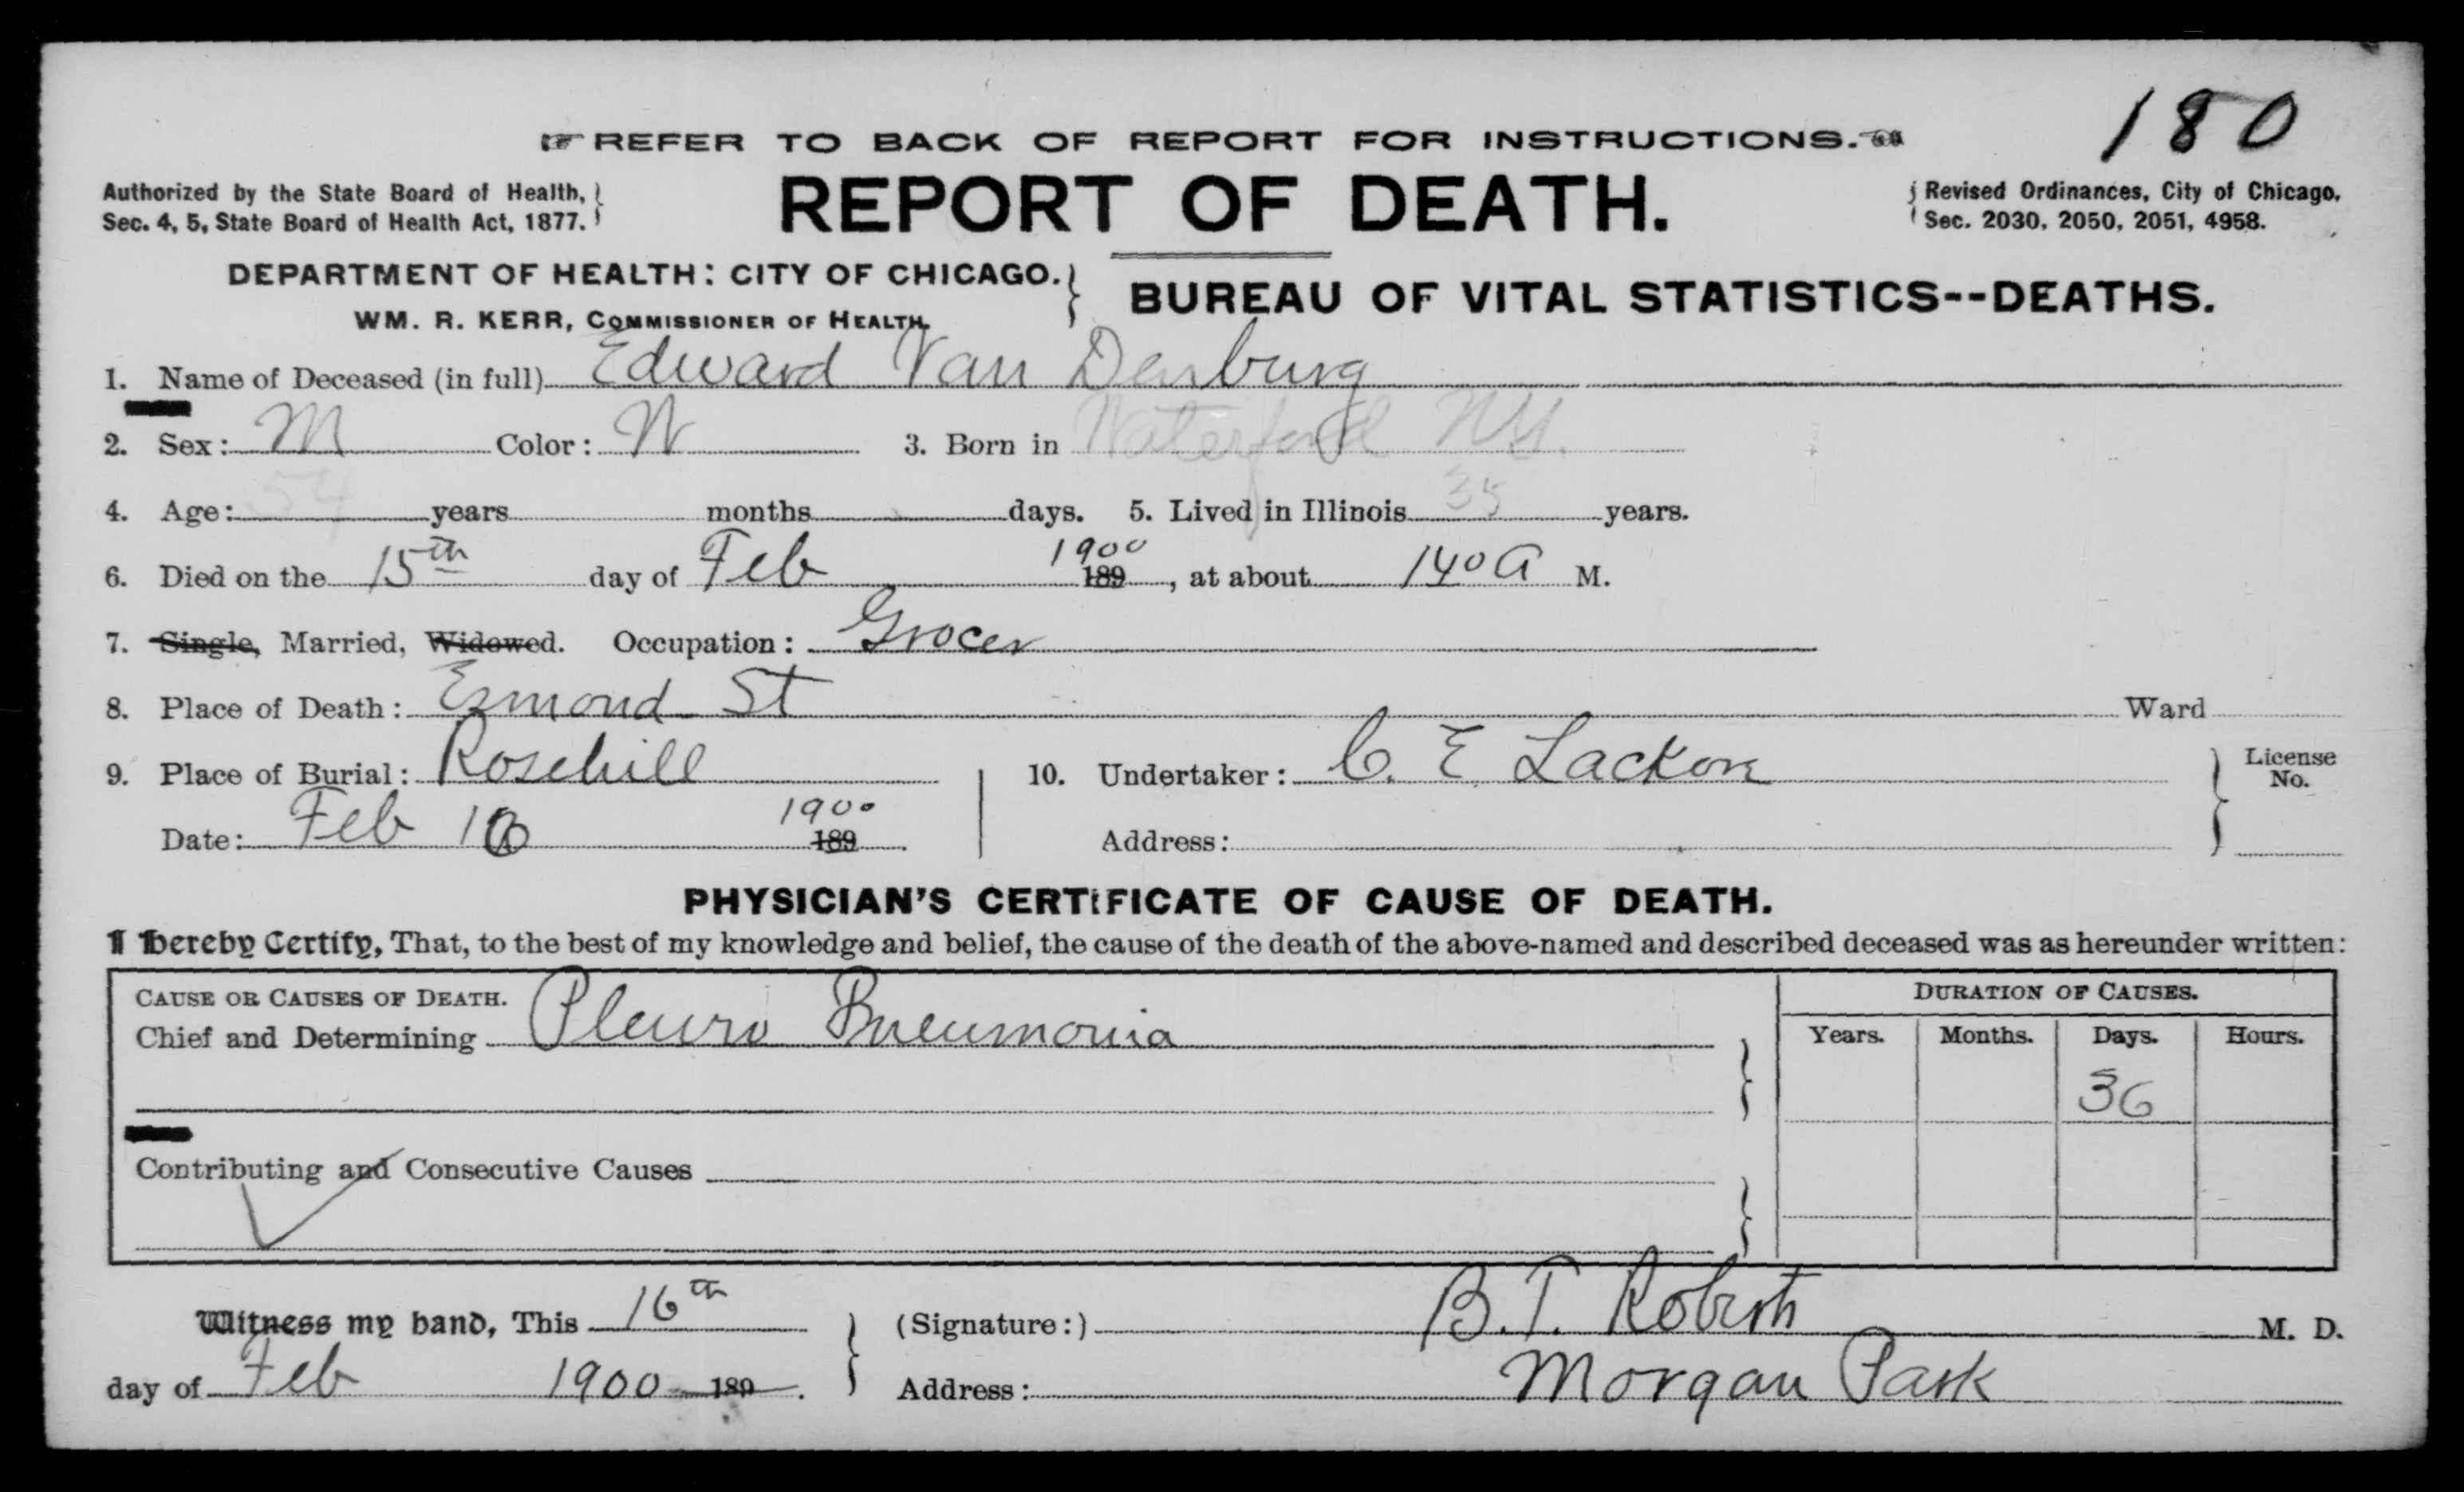 180
REFER TO BACK OF REPORT FOR INSTRUCTIONS.
Authorized by the State Board of Health,
Sec. 4, 5, State Board of Health Act, 1877.
REPORT OF DEATH.
Revised Ordinances, City of Chicago,
Sec. 2030, 2050, 2051, 4958.
DEPARTMENT OF HEALTH: CITY OF CHICAGO.
WM. R. KERR, COMMISSIONER OF HEALTH.
BUREAU OF VITAL STATISTICS--DEATHS.
1. Name of Deceased (in full) Edward Van Denburg
2. Sex: M Color: W 3. Born in Waterford NY.
4. Age: 54 years months days. 5. Lived in Illinois 35 years.
6. Died on the 15th day of Feb 1900 189 , at about 140 A M.
7. Single, Married, Widowed. Occupation: Grocer
8. Place of Death: Esmond St Ward
9. Place of Burial: Rosehill
Date: Feb 16 1900 189 .
10. Undertaker: C. E Lackore
Address:
License
No.
PHYSICIAN'S CERTIFICATE OF CAUSE OF DEATH.
I hereby Certify, That, to the best of my knowledge and belief, the cause of the death of the above-named and described deceased was as hereunder written:
CAUSE OR CAUSES OF DEATH.
Chief and Determining Pleuro Pneumonia
Contributing and Consecutive Causes
DURATION OF CAUSES.
Years. Months. Days. Hours.
36
Witness my hand, This 16th
day of Feb 1900 189 .
(Signature:) B. T. Roberts M. D.
Address: Morgan Park